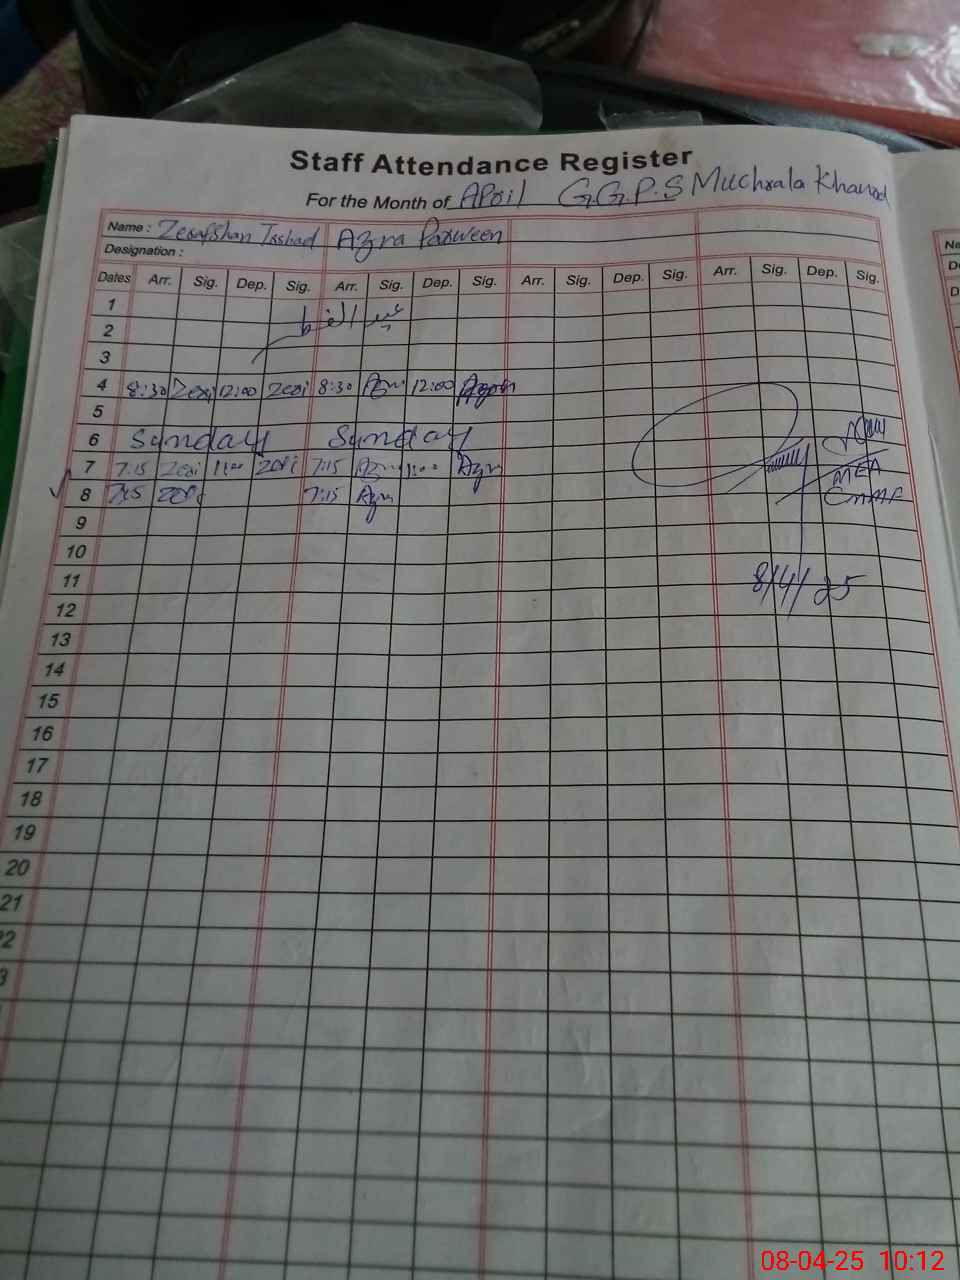 Staff Attendance Register
For the Month of April G.G.P.S Muchrala Khanad
Name : Zerafshan Irshad Azra Parween
Designation :
Dates Arr. Sig. Dep. Sig. Arr. Sig. Dep. Sig. Arr. Sig. Dep. Sig. Arr. Sig. Dep. Sig.
1
عید الفطر
2
3
4 8:30 Zeri 12:00 Zeri 8:30 Azra 12:00 Azra
5
6 Sunday Sunday
7 7:15 Zeri 11:00 Zeri 7:15 Azra 11:00 Azra
MEA
8 7:15 Zeri 7:15 Azra
9
10
11 8/4/25
12
13
14
15
16
17
18
19
20
21
22
3
Na
De
D
08-04-25 10:12